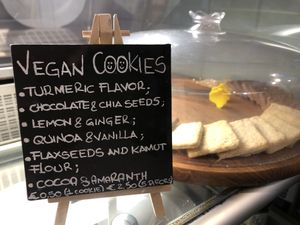 VEGAN COOKIES
• TURMERIC FLAVOR;
• CHOCOLATE & CHIA SEEDS;
• LEMON & GINGER;
• QUINOA & VANILLA;
• FLAXSEEDS AND KAMUT
FLOUR;
• COCOA & AMARANTH
€0,50 (1 COOKIE) €2,50